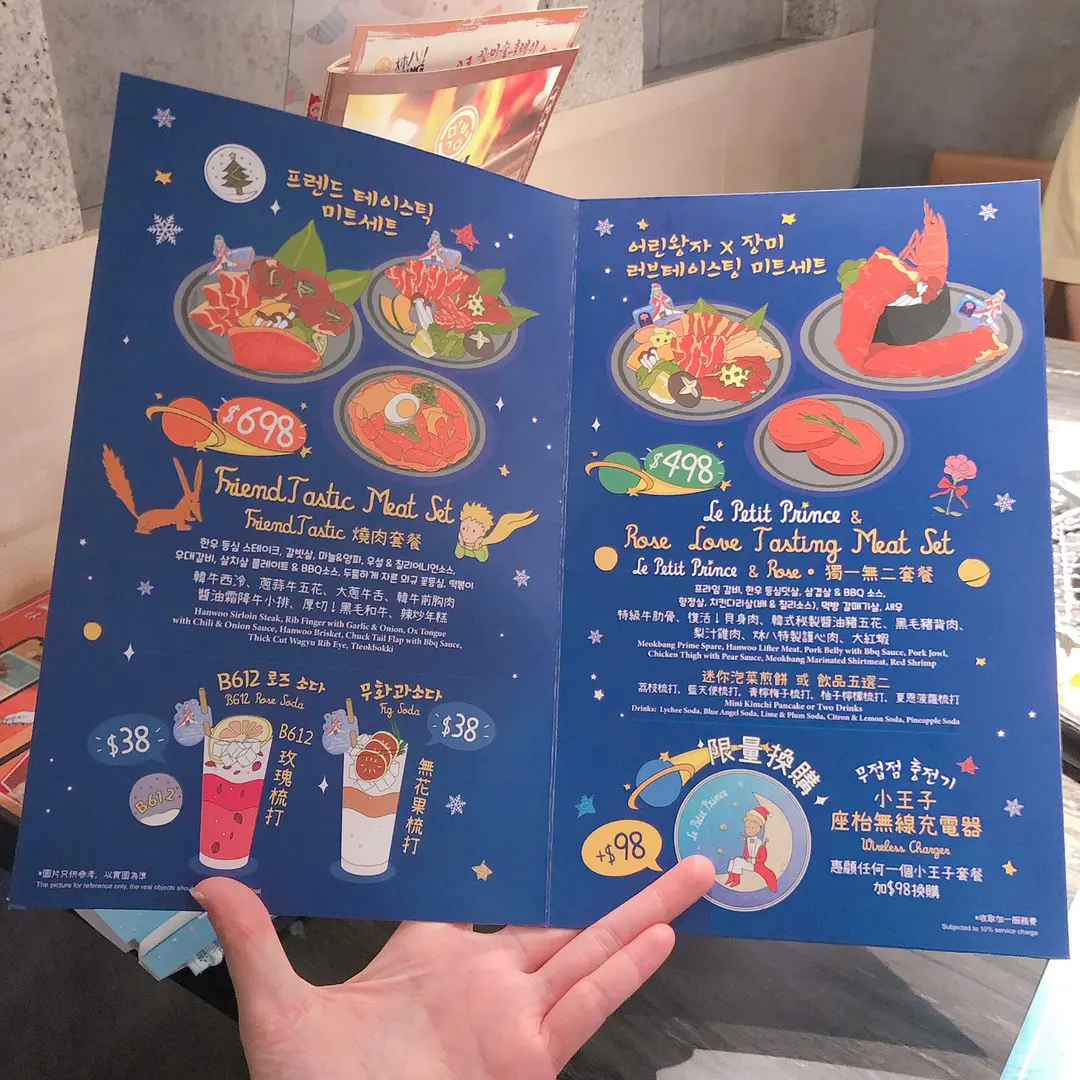 프렌드 테이스틱
미트세트
$698
FriendTastic Meat Set
FriendTastic 燒肉套餐
한우 등심 스테이크, 갈빗살, 마늘&양파, 우설 & 칠리어니언소스,
우대갈비, 살치살 플레이트 & BBQ소스, 두툼하게 자른 와규 꽃등심, 떡볶이
韓牛西冷、蔥蒜牛五花、大蔥牛舌、韓牛前胸肉
醬油霜降牛小排、厚切！黑毛和牛、辣炒年糕
Hanwoo Sirloin Steak, Rib Finger with Garlic & Onion, Ox Tongue
with Chili & Onion Sauce, Hanwoo Brisket, Chuck Tail Flap with BBQ Sauce,
Thick Cut Wagyu Rib Eye, Tteokbokki
B612 로즈 소다
B612 Rose Soda
$38
B612
玫瑰梳打
B612
무화과소다
Fig Soda
$38
無花果梳打
*圖片只供參考，以實圖為準
The picture for reference only, the real objects
어린왕자 X 장미
러브테이스팅 미트세트
$498
Le Petit Prince &
Rose Love Tasting Meat Set
Le Petit Prince & Rose • 獨一無二套餐
프라임 갈비, 한우 등심덧살, 삼겹살 & BBQ 소스,
항정살, 치킨다리살(배 & 칠리소스), 먹방 갈매기살, 새우
特級牛肋骨、復活！貝身肉、韓式秘製醬油豬五花、黑毛豬背肉、
梨汁雞肉、炑八特製護心肉、大紅蝦
Meokbang Prime Spare, Hanwoo Lifter Meat, Pork Belly with Bbq Sauce, Pork Jowl,
Chicken Thigh with Pear Sauce, Meokbang Marinated Shirtmeat, Red Shrimp
迷你泡菜煎餅 或 飲品五選二
荔枝梳打，藍天使梳打，青檸梅子梳打，柚子檸檬梳打，夏恩菠蘿梳打
Mini Kimchi Pancake or Two Drinks
Drinks: Lychee Soda, Blue Angel Soda, Lime & Plum Soda, Citron & Lemon Soda, Pineapple Soda
限量換購
+$98
Le Petit Prince
무접점 충전기
小王子
座枱無線充電器
Wireless Charger
惠顧任何一個小王子套餐
加$98換購
*收取加一服務費
Subjected to 10% service charge